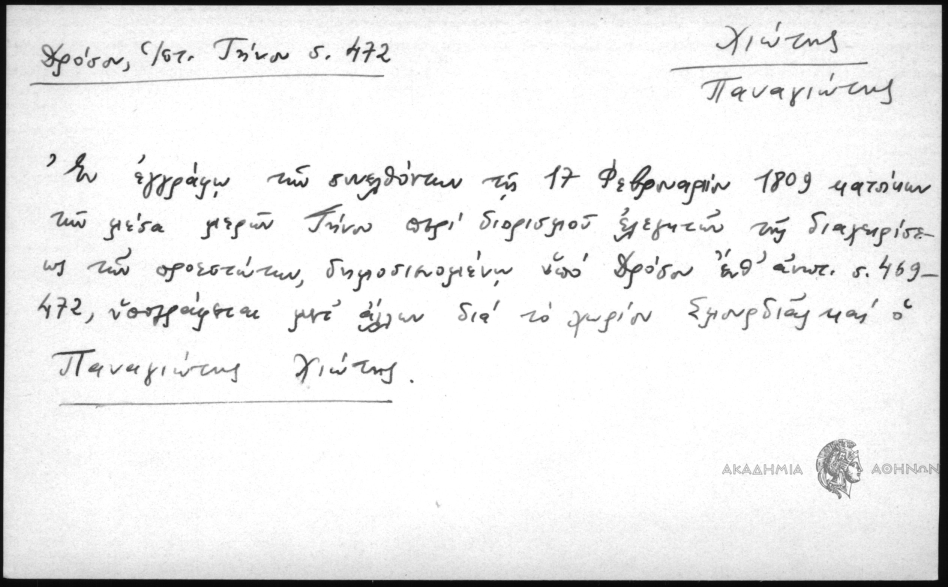 Δρόσου, Ἱστ. Τήνου σ. 472
Χιώτης
Παναγιώτης
Ἐν ἐγγράφῳ τῶν συνελθόντων τῇ 17 Φεβρουαρίου 1809 κατοίκων
τῶν μέσα μερῶν Τήνου περί διορισμοῦ ἐλεγητῶν τῆς διαχειρίσε-
ως τῶν προεστώτων, δημοσιευομένῳ ὑπό Δρόσου ἔνθ' ἀνωτ. σ. 469-
472, ὑπογράφεται μετ' ἄλλων διά τό χωρίον Σμουρδιᾶς καί ὁ
Παναγιώτης Χιώτης.
ΑΚΑΔΗΜΙΑ ΑΘΗΝΩΝ